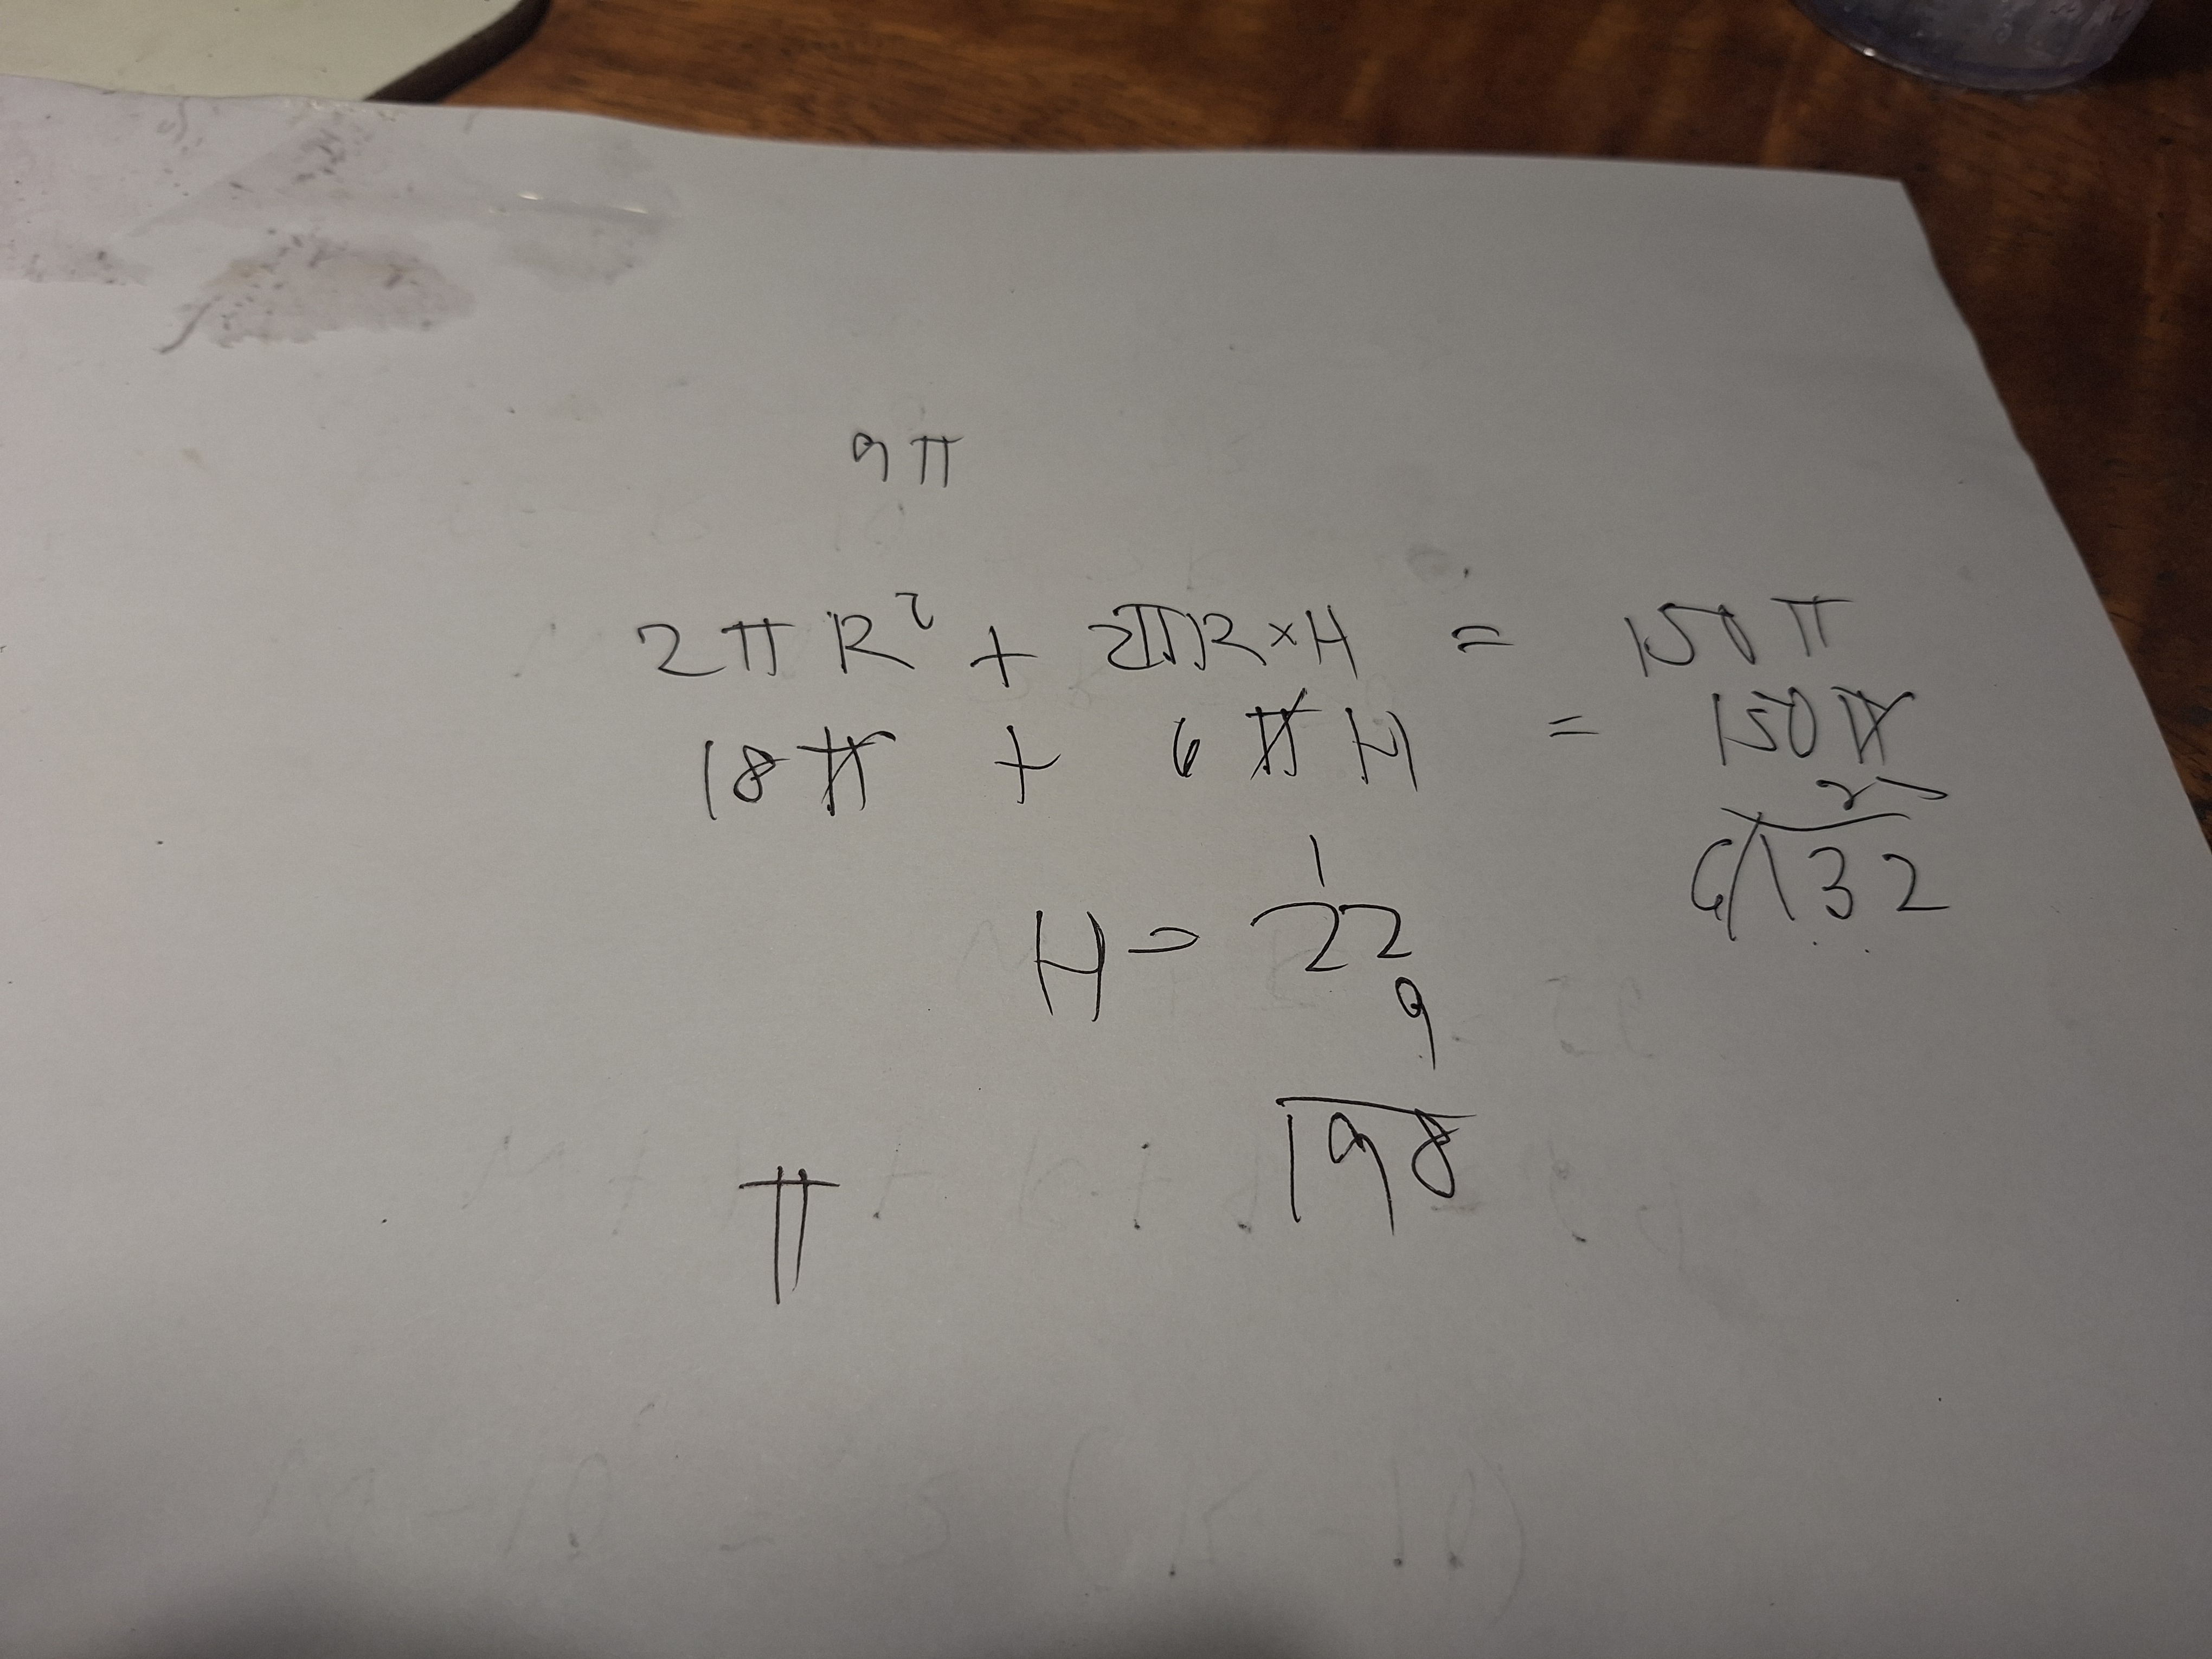 9π
2πR² + 2πR×H = 150π
18π + 6πH = 150π
2
6)132
1
H = 22
9
198
π